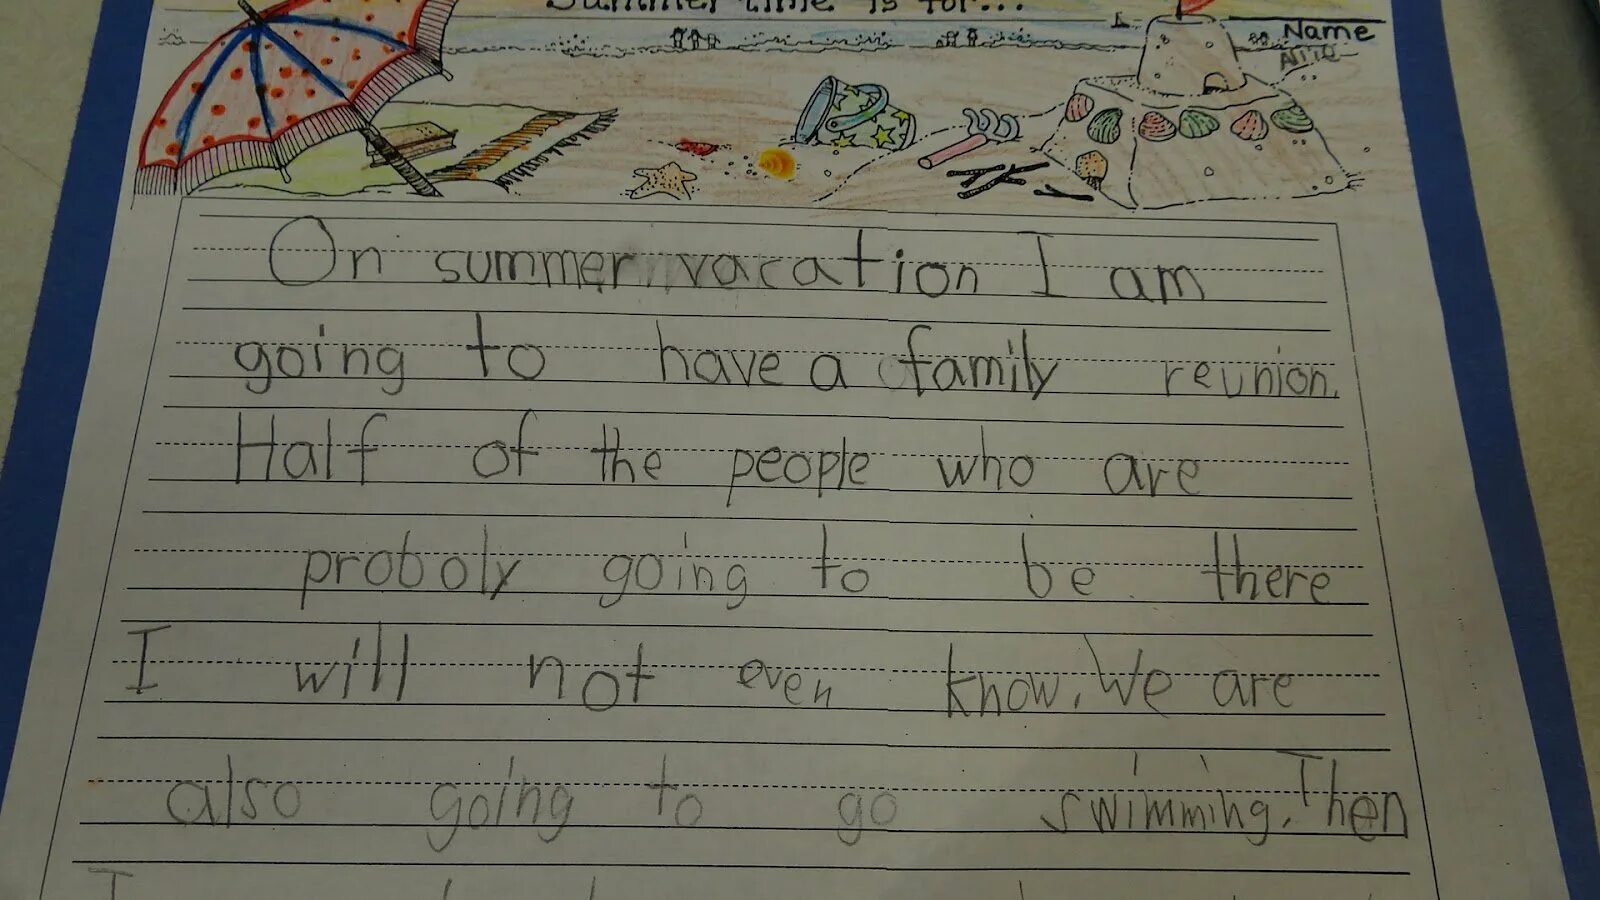 Summertime is for...
Name
On summer vacation I am
going to have a family reunion.
Half of the people who are
proboly going to be there
I will not even know. We are
also going to go
swimming. Then
I